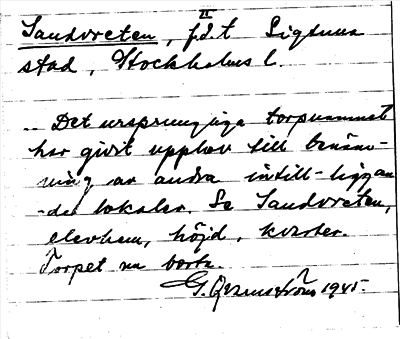 II
Sandvreten, f.d. t Sigtuna
stad, Stockholms l.
.. Det ursprungliga torpnamnet
har givit upphov till benäm-
ning av andra intill-liggan-
-de lokaler. Se Sandvreten,
elevhem, höjd, kvarter.
Torpet nu borta.
G. 1945.